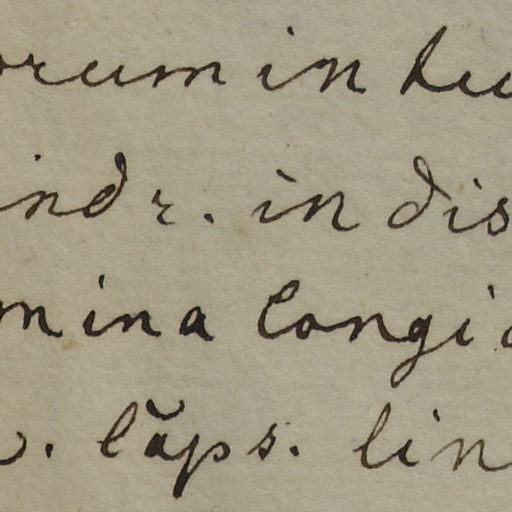 orum in hu
indr. in dis
mina longi
. căps. lin